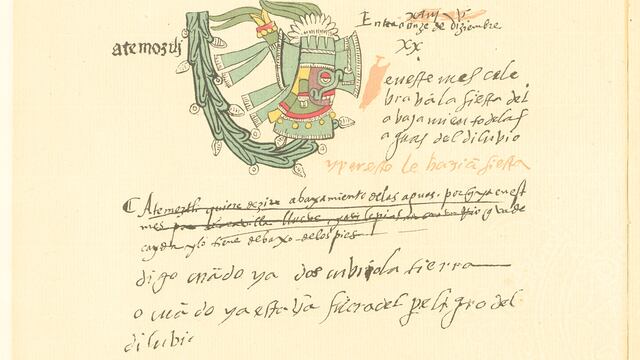 atemoztli
Entra a onze de diziembre
XX
en este mes cele
bravã la fiesta del
abajamiento de las
aguas del dilubio
y por esto le haziã fiesta
Atemoztli quiere dezir abaxamiento de las aguas. porq̃ ya en est
mes
cayda y lo tiene debaxo de los pies
digo cuãdo ya descubriola tierra
o cuãdo ya estavã fuera del peligro del
dilubio